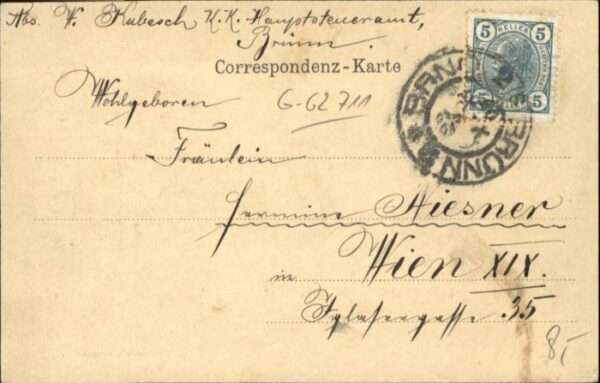 Abs. V. Kubesch K.K. Hauptsteueramt,
Brünn.
5 HELLER 5
5 5
Correspondenz-Karte
BRÜNN
Wohlgeboren
G-62711
Fräulein
Hermine Hiesner
Wien XIX.
in
35
8,-